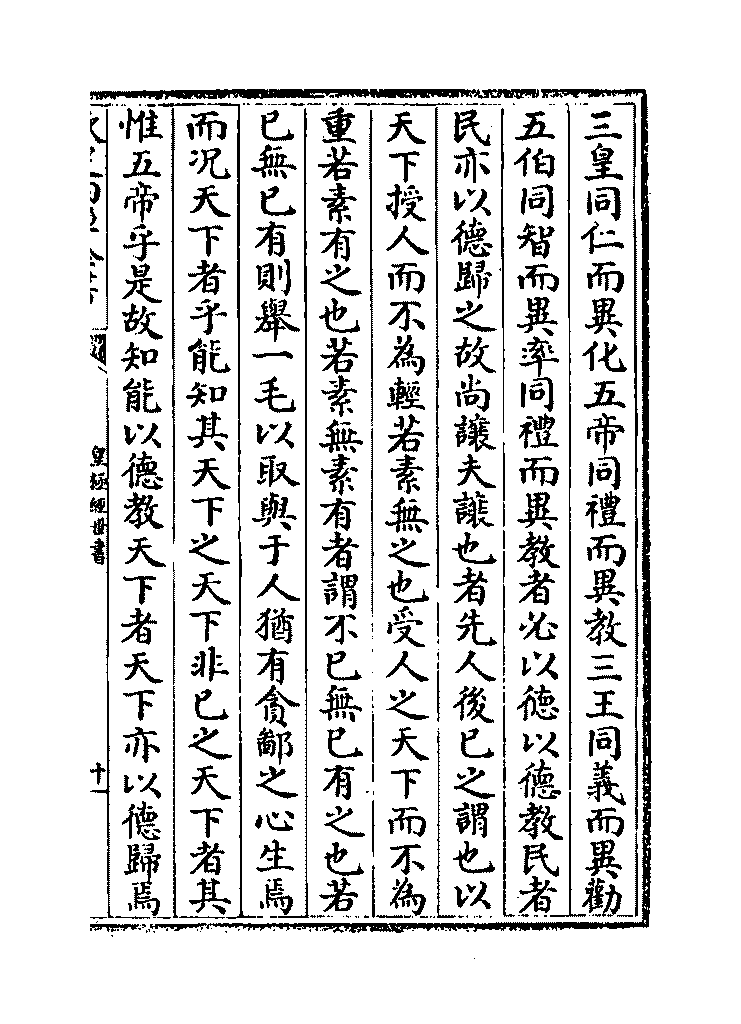 三皇同仁而異化五帝同禮而異教三王同義而異勸
五伯同智而異率同禮而異教者必以德以德教民者
民亦以德歸之故尚讓夫讓也者先人後已之謂也以
天下授人而不為輕若素無之也受人之天下而不為
重若素有之也若素無素有者謂不已無已有之也若
已無已有則舉一毛以取與于人猶有貪鄙之心生焉
而况天下者乎能知其天下之天下非已之天下者其
惟五帝乎是故知能以德教天下者天下亦以德歸焉
皇極經世書
十一